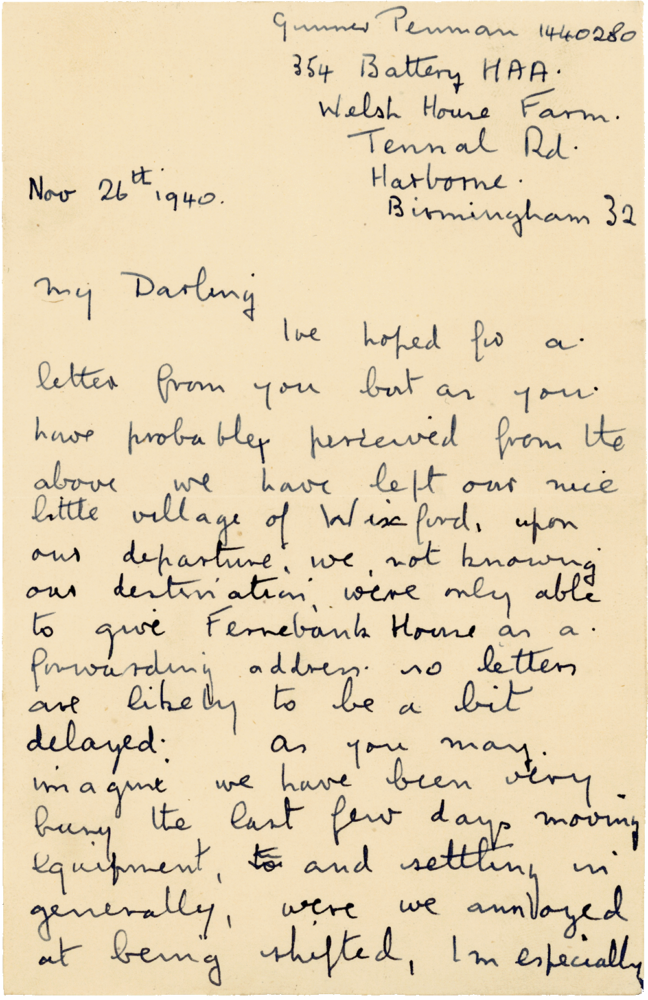 Gunner Penman 1440280
354 Battery HAA.
Welsh House Farm.
Tennal Rd.
Harborne.
Birmingham 32
Nov 26th 1940.
My Darling
Ive hoped for a
letter from you but as you
have probabley percieved from the
above we have left our nice
little village of Wixford, upon
our departure, we, not knowing
our destination, were only able
to give Fernebank House as a
forwarding address. so letters
are likely to be a bit
delayed. as you may
imagine we have been very
busy the last few days moving
equipment, to and settling in
generally, were we annoyed
at being shifted, Im especially